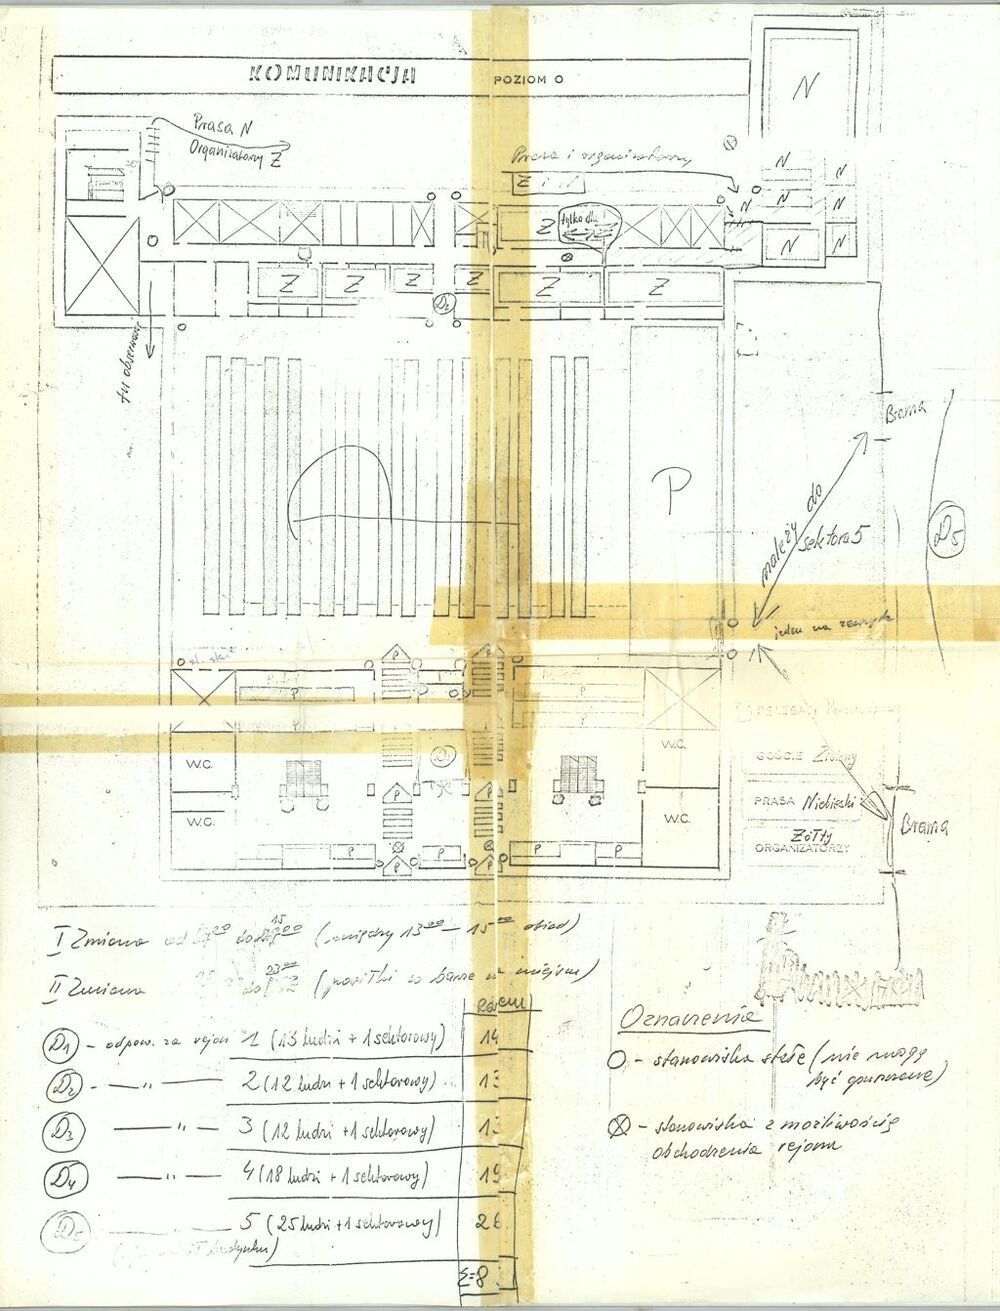 KOMUNIKACJA
POZIOM O
Prasa N
Organizatorzy Z
Prasa i organizatorzy
N
N
N
N
N
N
N
N
Z
tylko dla
Z
Z
Z
Z
Z
Z
D2
tu obserwować
Brama
P
należy do
sektora 5
D5
jeden na zewnątrz
P
P
P
P
W.C.
W.C.
W.C.
W.C.
P
P
P
P
P
P
P
GOŚCIE Zielony
PRASA Niebieski
Żółty
ORGANIZATORZY
Brama
I Zmiana od do 15 00 (między 13 00 – 15 00 obiad)
II Zmiana do 23 00 (posiłki w barze w miejscu)
Razem
D1 - odpow. za rejon 1 (13 ludzi + 1 sektorowy) 14
D2 - " - 2 (12 ludzi + 1 sektorowy) 13
D3 - " - 3 (12 ludzi + 1 sektorowy) 13
D4 - " - 4 (18 ludzi + 1 sektorowy) 19
5 (25 ludzi + 1 sektorowy) 26
budynku)
Σ=8
Oznaczenia
O - stanowiska stałe (nie mogą
być opuszczone)
⊗ - stanowiska z możliwością
obchodzenia rejonu